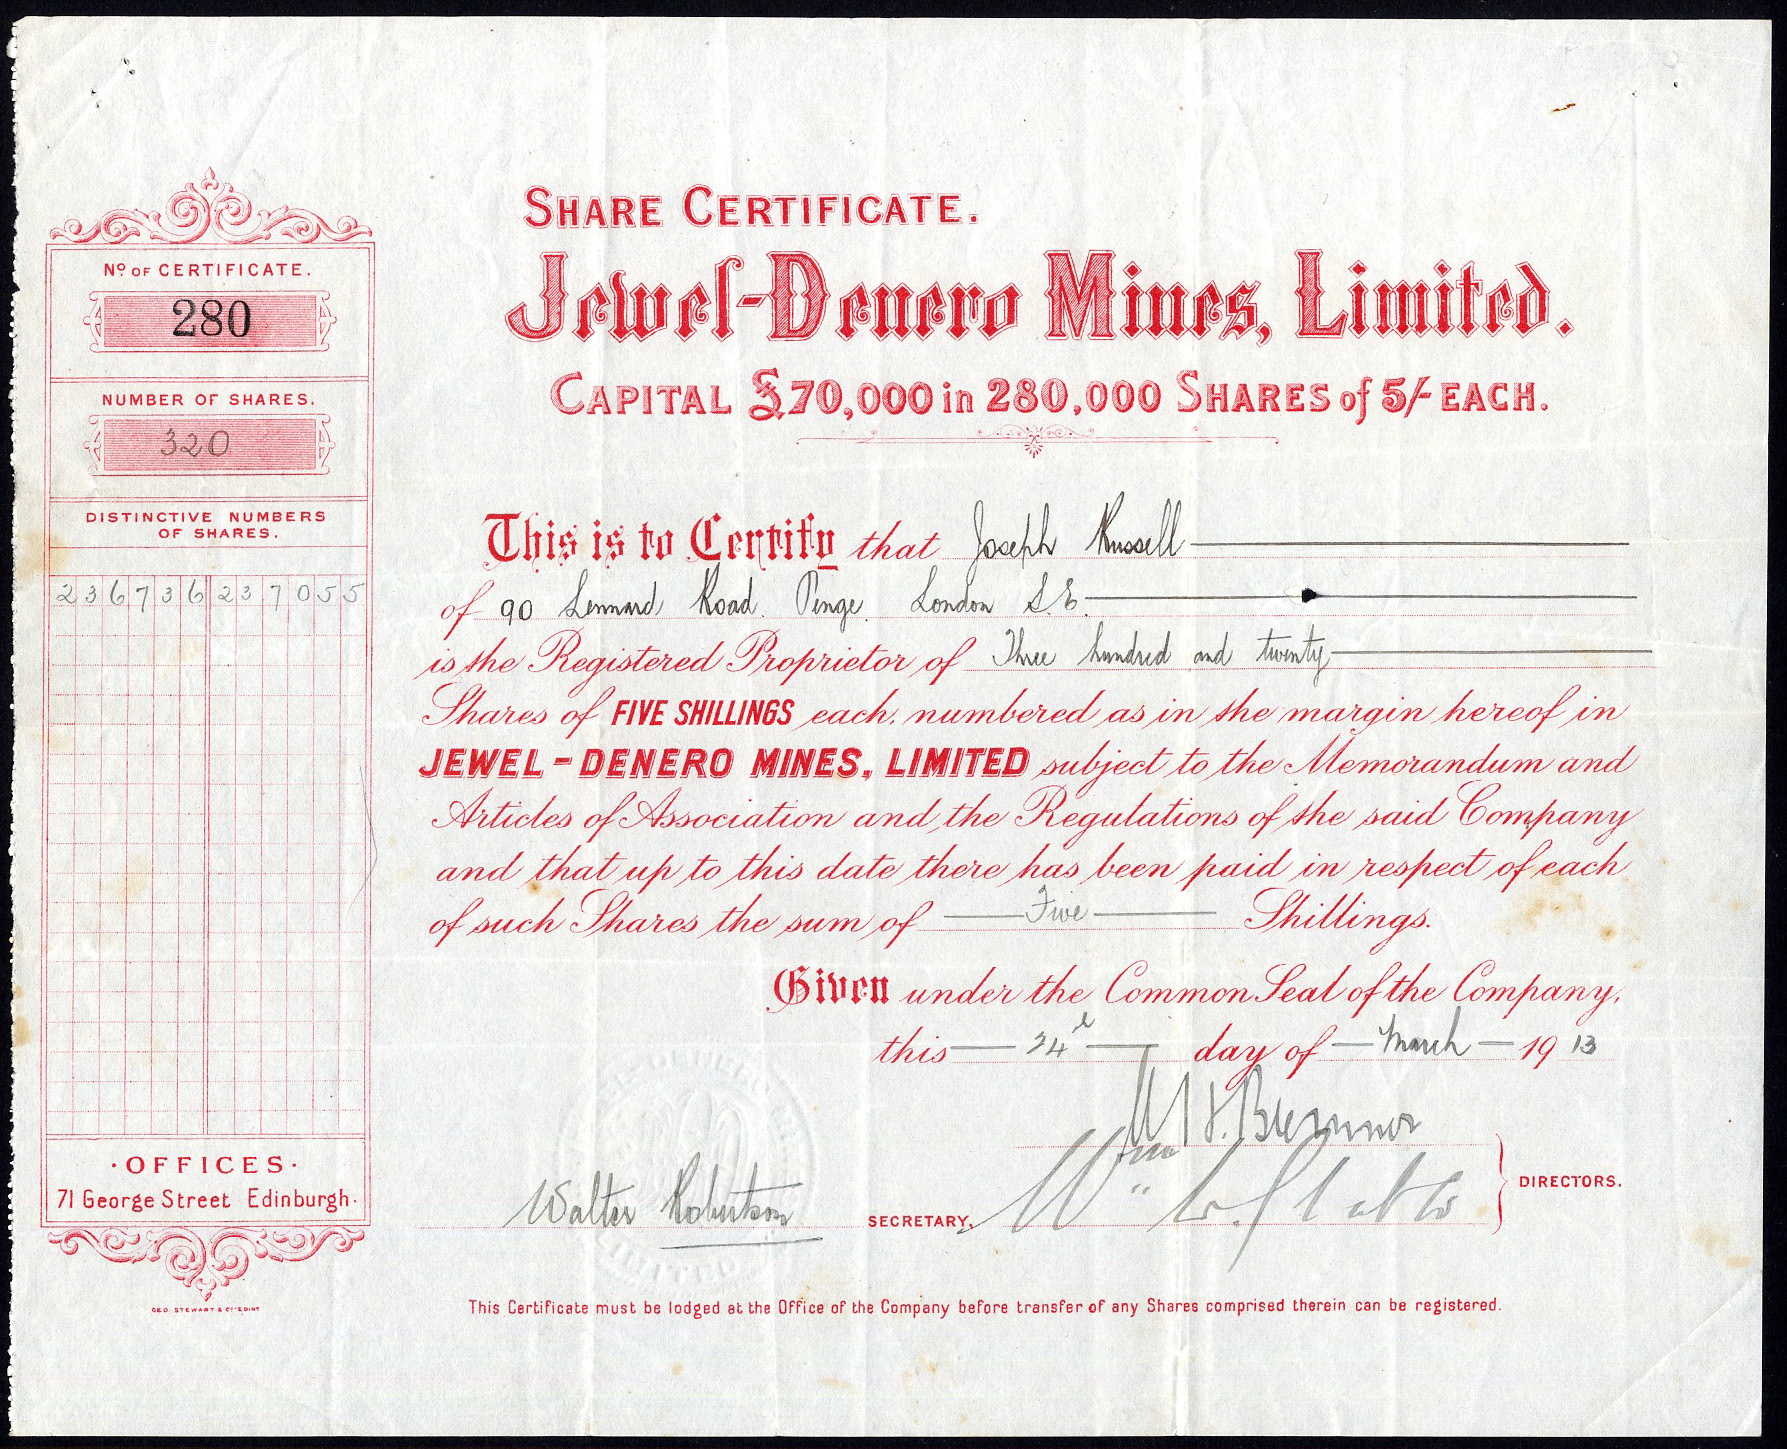 No. OF CERTIFICATE.
280
NUMBER OF SHARES.
320
DISTINCTIVE NUMBERS
OF SHARES.
236736 237055
·OFFICES·
71 George Street Edinburgh·
GEO. STEWART & Co. EDINr
SHARE CERTIFICATE.
Jewel-Denero Mines, Limited.
CAPITAL £70,000 in 280,000 SHARES of 5/- EACH.
This is to Certify that Joseph Russell
of 90 Lennard Road. Penge. London S.E.
is the Registered Proprietor of Three hundred and twenty
Shares of FIVE SHILLINGS each, numbered as in the margin hereof in
JEWEL-DENERO MINES, LIMITED subject to the Memorandum and
Articles of Association and the Regulations of the said Company
and that up to this date there has been paid in respect of each
of such Shares the sum of Five Shillings.
Given under the Common Seal of the Company,
this 24th day of March 1913
Bremner
Wm
Walter Robertson SECRETARY,
DIRECTORS.
This Certificate must be lodged at the Office of the Company before transfer of any Shares comprised therein can be registered.